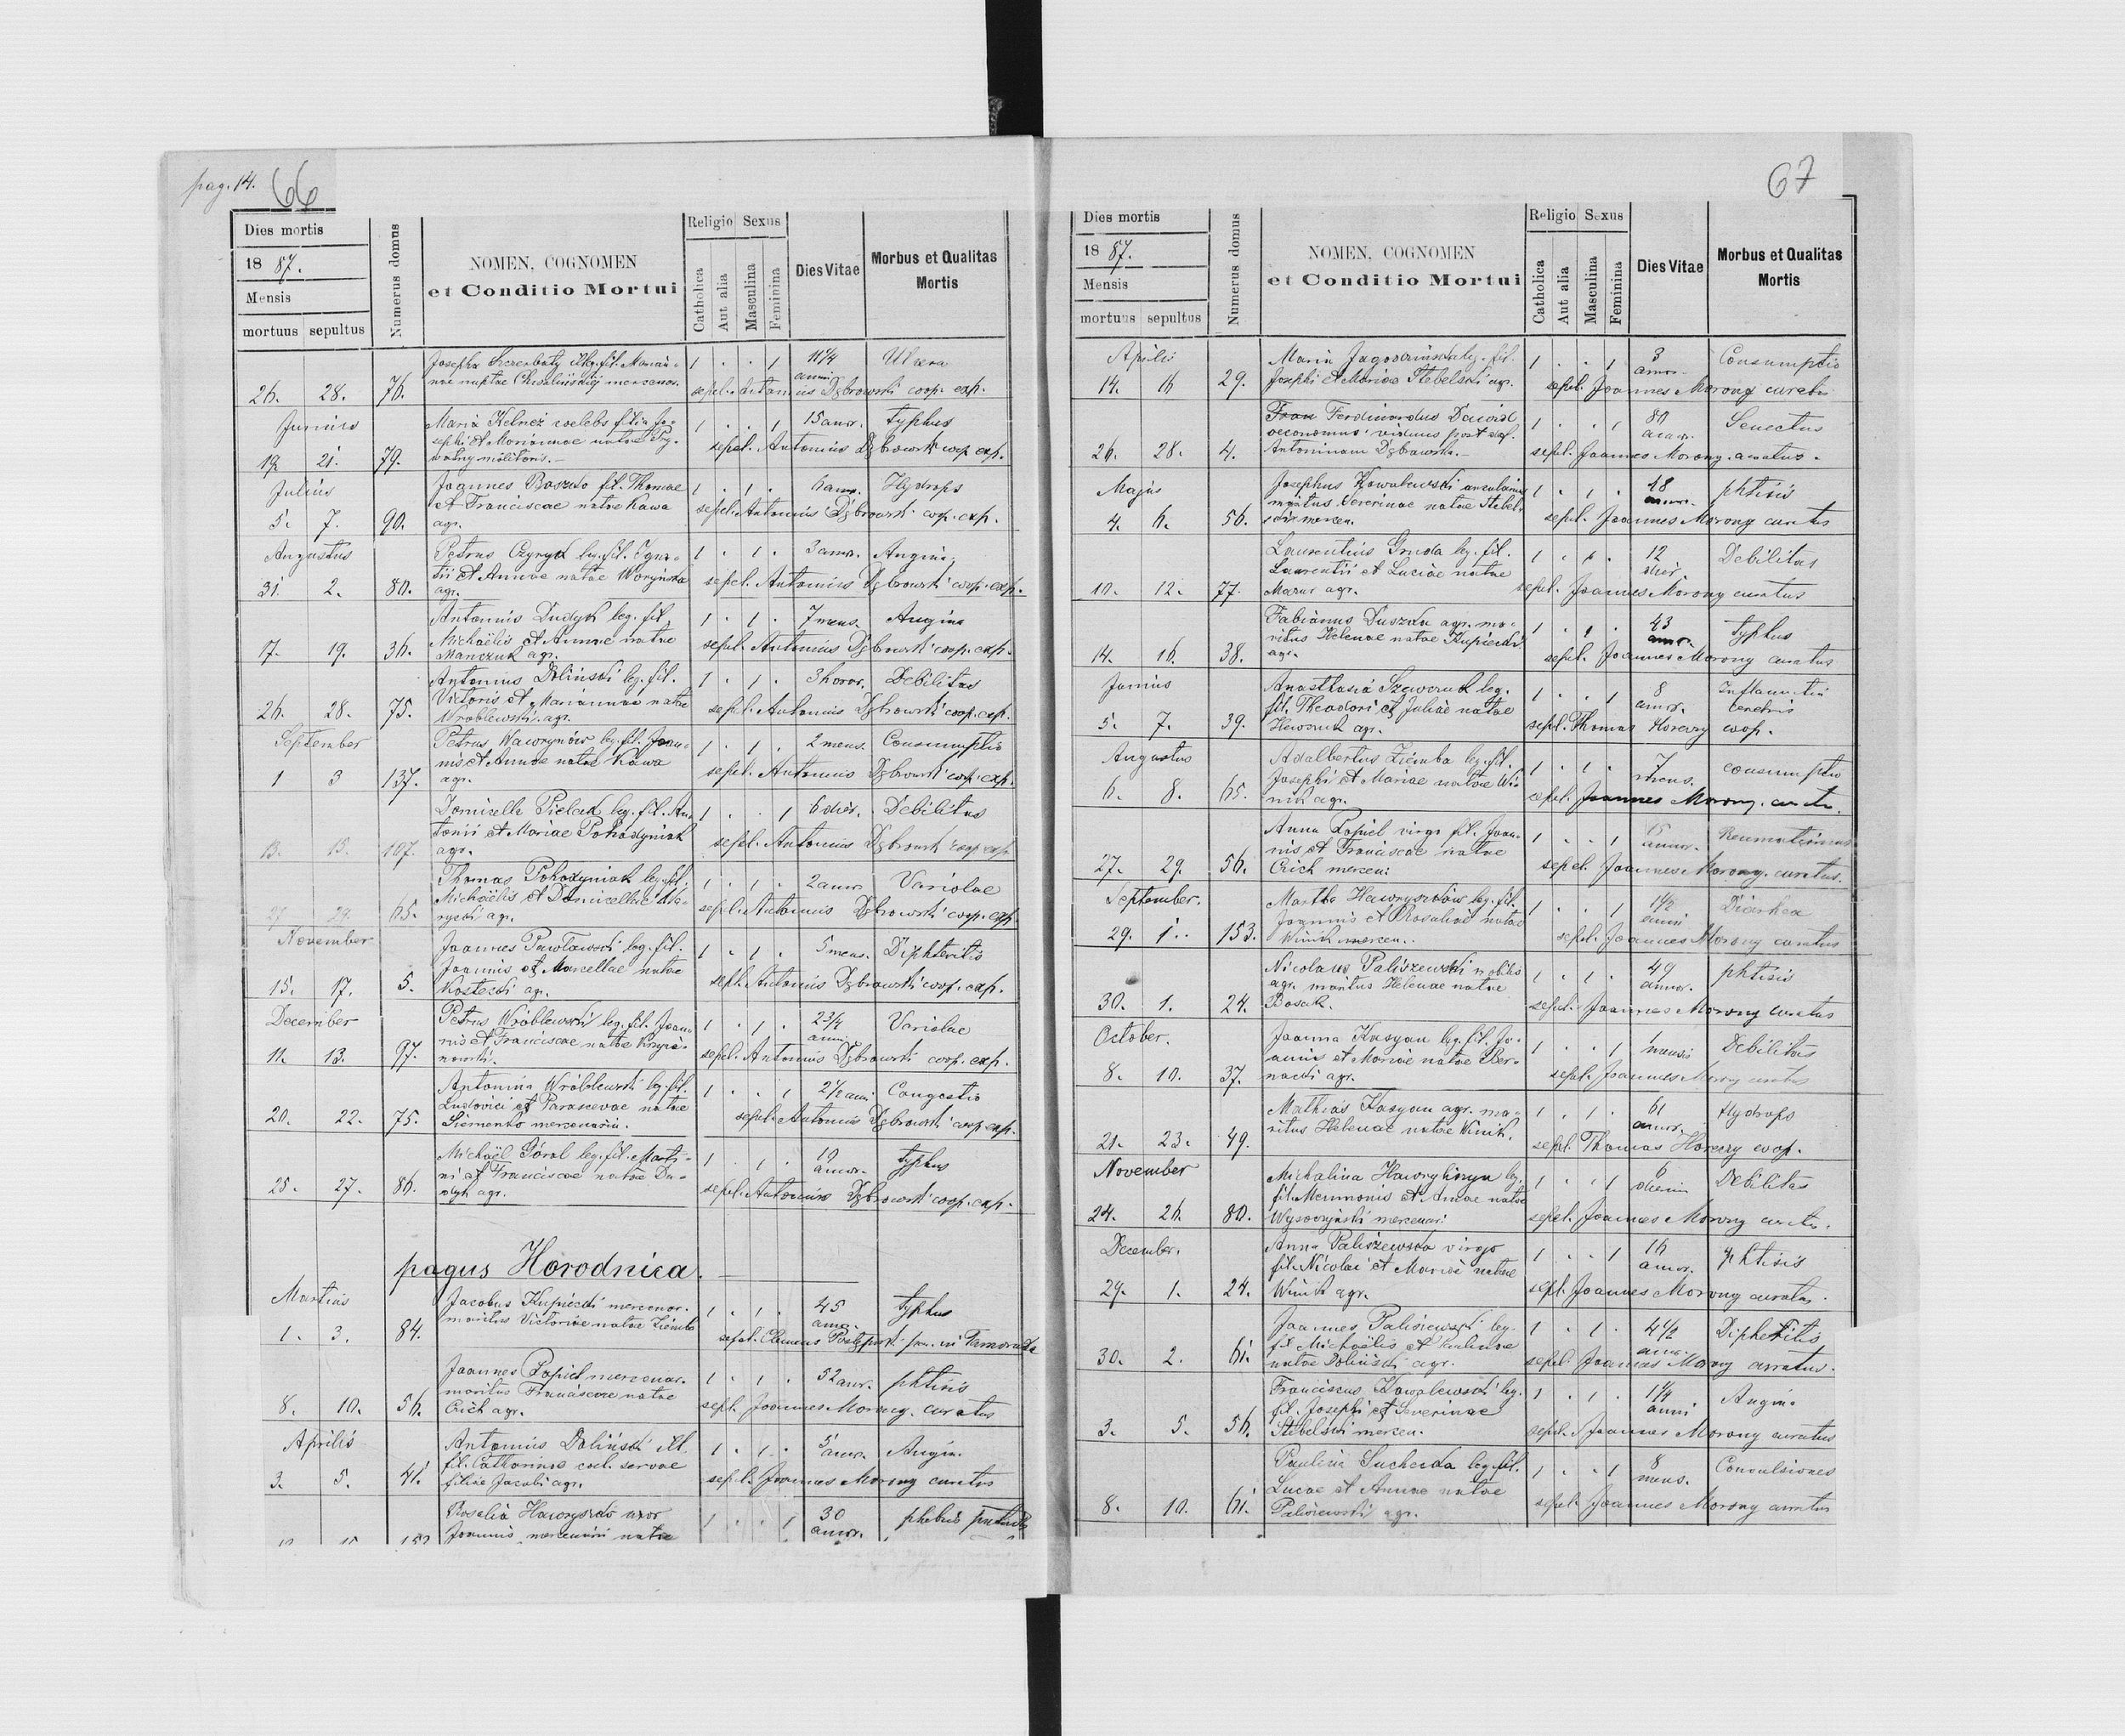 pag. 14. 66
Dies mortis
1887.
Mensis
mortuus sepultus
Numerus domus
NOMEN, COGNOMEN
et Conditio Mortui
Religio Sexus
Catholica
Aut alia
Masculina
Feminina
Dies Vitae
Morbus et Qualitas
Mortis
26. 28. 76.
1 . . 1 11 1/4 anni Ulcera
sepel. Antonius Dąbrowski coop. exp.
Junius
19. 21. 79.
Maria Kelnez coelebs filia Jo-
sephi et Mariannae natae
militaris.
1 . . 1 15 annr. typhus
sepel. Antonius Dąbrowski coop. exp.
Julius
5. 7. 90.
Joannes Baszto fil. Thomae
et Franciscae natae Kawa
agr.
1 . 1 . 6 annr. Hydrops
sepel. Antonius Dąbrowski coop. exp.
Augustus
31. 2. 80.
Petrus Czyryk leg. fil. Igna-
tii et Annae natae Woryńska
agr.
1 . 1 . 3 annr. Angina
sepel. Antonius Dąbrowski coop. exp.
17. 19. 36.
Antonius Dudyk leg. fil.
Michaëlis et Annae natae
Manczuk agr.
1 . 1 . 7 mens. Angina
sepel. Antonius Dąbrowski coop. exp.
26. 28. 75.
Antonius Doliński leg. fil.
Victoris et Mariannae natae
Wroblewski agr.
1 . 1 . 3 horar. Debilitas
sepel. Antonius Dąbrowski coop. exp.
September
1 3 137.
Petrus Wawrynów leg. fil. Joan-
nis et Annae natae Kawa
agr.
1 . 1 . 2 mens. Consumptio
sepel. Antonius Dąbrowski coop. exp.
13. 15. 107.
Domicella Pielak leg. fil. An-
tonii et Mariae Pohodyniak
agr.
1 . . 1 6 dier. Debilitas
sepel. Antonius Dąbrowski coop. exp.
27. 29. 65.
Thomas Pohodyniak leg. fil.
Michaëlis et Domicellae
agr.
1 . 1 . 2 annr. Variolae
sepel. Antonius Dąbrowski coop. exp.
November
15. 17. 5.
Joannes Pawłowski leg. fil.
Joannis et Marcellae natae
Kostecki agr.
1 . 1 . 5 mens. Diphteritis
sepel. Antonius Dąbrowski coop. exp.
December
11. 13. 97.
Petrus Wróblewski leg. fil. Joan-
nis et Franciscae natae
1 . 1 . 2 3/4 anni Variolae
sepel. Antonius Dąbrowski coop. exp.
20. 22. 75.
Antonina Wróblewski leg. fil.
Ludovici et Parascevae natae
Siemento mercenarii.
1 . . 1 2 1/2 anni Congestio
sepel. Antonius Dąbrowski coop. exp.
25. 27. 86.
Michaël Góral leg. fil. Marti-
ni et Franciscae natae Du-
dyk agr.
1 . 1 . 19 annor. typhus
sepel. Antonius Dąbrowski coop. exp.
pagus Horodnica.
Martius
1. 3. 84.
Jacobus Kupiecki mercenar.
maritus Victoriae natae Ziemba
1 . 1 . 45 annr. typhus
sepel. Clemens
8. 10. 56.
Joannes Łapiel mercenar.
maritus Franciscae natae
Crich agr.
1 . 1 . 52 annr. phtisis
sepel. Joannes Morong. curatus
Aprilis
3. 5. 41.
Antonius Doliński ill.
fil. Catharinae coel. servae
filiae Jacobi agr.
1 . 1 . 5 annr. Angin.
sepel. Joannes Morong curatus
Rosalia Hawryszko uxor
Joannis mercenarii natae
1 . . 1 30 annor.
67
Dies mortis
1887.
Mensis
mortuus sepultus
Numerus domus
NOMEN, COGNOMEN
et Conditio Mortui
Religio Sexus
Catholica
Aut alia
Masculina
Feminina
Dies Vitae
Morbus et Qualitas
Mortis
Aprilis
14. 16 29.
Maria Jagodzińska leg. fil.
Josephi et Mariae Stebelski agr.
1 . . 1 3 annor. Consumptio
sepel. Joannes Morong curatus
26. 28. 4.
Ferdinandus Dawid
oeconomus viduus post def.
Antoninam Dąbrowska.
80 annor. Senectus
sepel. Joannes Morong. curatus.
Majus
4. 6. 56.
Josephus Kowalewski
maritus Severinae natae Stebel-
ski mercen.
1 . 1 . 48 annor. phtisis
sepel. Joannes Morong curatus
10. 12. 77.
Laurentius Gruda leg. fil.
Laurentii et Luciae natae
Mazur agr.
1 . 1 . 12 dier. Debilitas
sepel. Joannes Morong curatus
14. 16. 38.
Fabianus Duszka agr. ma-
ritus Helenae natae Kupiecki
agr.
1 . 1 . 43 annor. typhus
sepel. Joannes Morong curatus
Junius
5. 7. 39.
Anasthasia Szewczuk leg.
fil. Theodori et Juliae natae
agr.
1 . . 1 8 annor. Inflammatio cerebris
sepel. Thomas Horeczy coop.
Augustus
6. 8. 65.
Adalbertus Ziemba leg. fil.
Josephi et Mariae natae Wi-
nik agr.
1 . 1 . 7 mens. consumptio
sepel. Joannes Morong. curatu.
27. 29. 56.
Anna Łapiel virgo fil. Joan-
nis et Franciscae natae
Crich mercen.
1 . . 1 15 annor. Reumatismus
sepel. Joannes Morong. curatus.
September.
29. 1. 153.
Martha Hawryszków leg. fil.
Joannis et Rosaliae natae
Winik mercen.
1 . . 1 1 1/2 anni Diarhea
sepel. Joannes Morong curatus
30. 1. 24.
Nicolaus Paliszewski nobilis
agr. maritus Helenae natae
Bosak.
1 . 1 . 49 annor. phtisis
sepel. Joannes Morong curatus
October.
8. 10. 37.
Joanna Kasyan leg. fil. Jo-
annis et Mariae natae Ber-
nacki agr.
1 . . 1 1 mensis Debilitas
sepel. Joannes Morong curatus
21. 23. 49.
Mathias Kasyan agr. ma-
ritus Helenae natae Winik.
1 . 1 . 61 annor. Hydrops
sepel. Thomas Horeczy coop.
November
24. 26. 80.
Michalina Hawryliszyn leg.
fil. Memnonis et Annae natae
Wysoczyński mercenar.
1 . . 1 6 dierum Debilitas
sepel. Joannes Morong curatu.
December.
29. 1. 24.
Anna Paliszewska virgo
fil. Nicolai et Mariae natae
Winik agr.
1 . . 1 16 annor. phtisis
sepel. Joannes Morong curatus.
30. 2. 61.
Joannes Paliszewski leg.
fil. Michaëlis et Paulinae
natae Doliński agr.
1 . 1 . 4 1/2 annr. Diphteritis
sepel. Joannes Morong curatus.
3. 5. 56.
Franciscus Kowalewski leg.
fil. Josephi et Severinae
Stebelski mercen.
1 . 1 . 1 1/4 anni Angina
sepel. Joannes Morong curatus
8. 10. 61.
Paulina Sucheida leg. fil.
Lucae et Annae natae
Paliszewski agr.
1 . . 1 8 mens. Convulsiones
sepel. Joannes Morong curatus